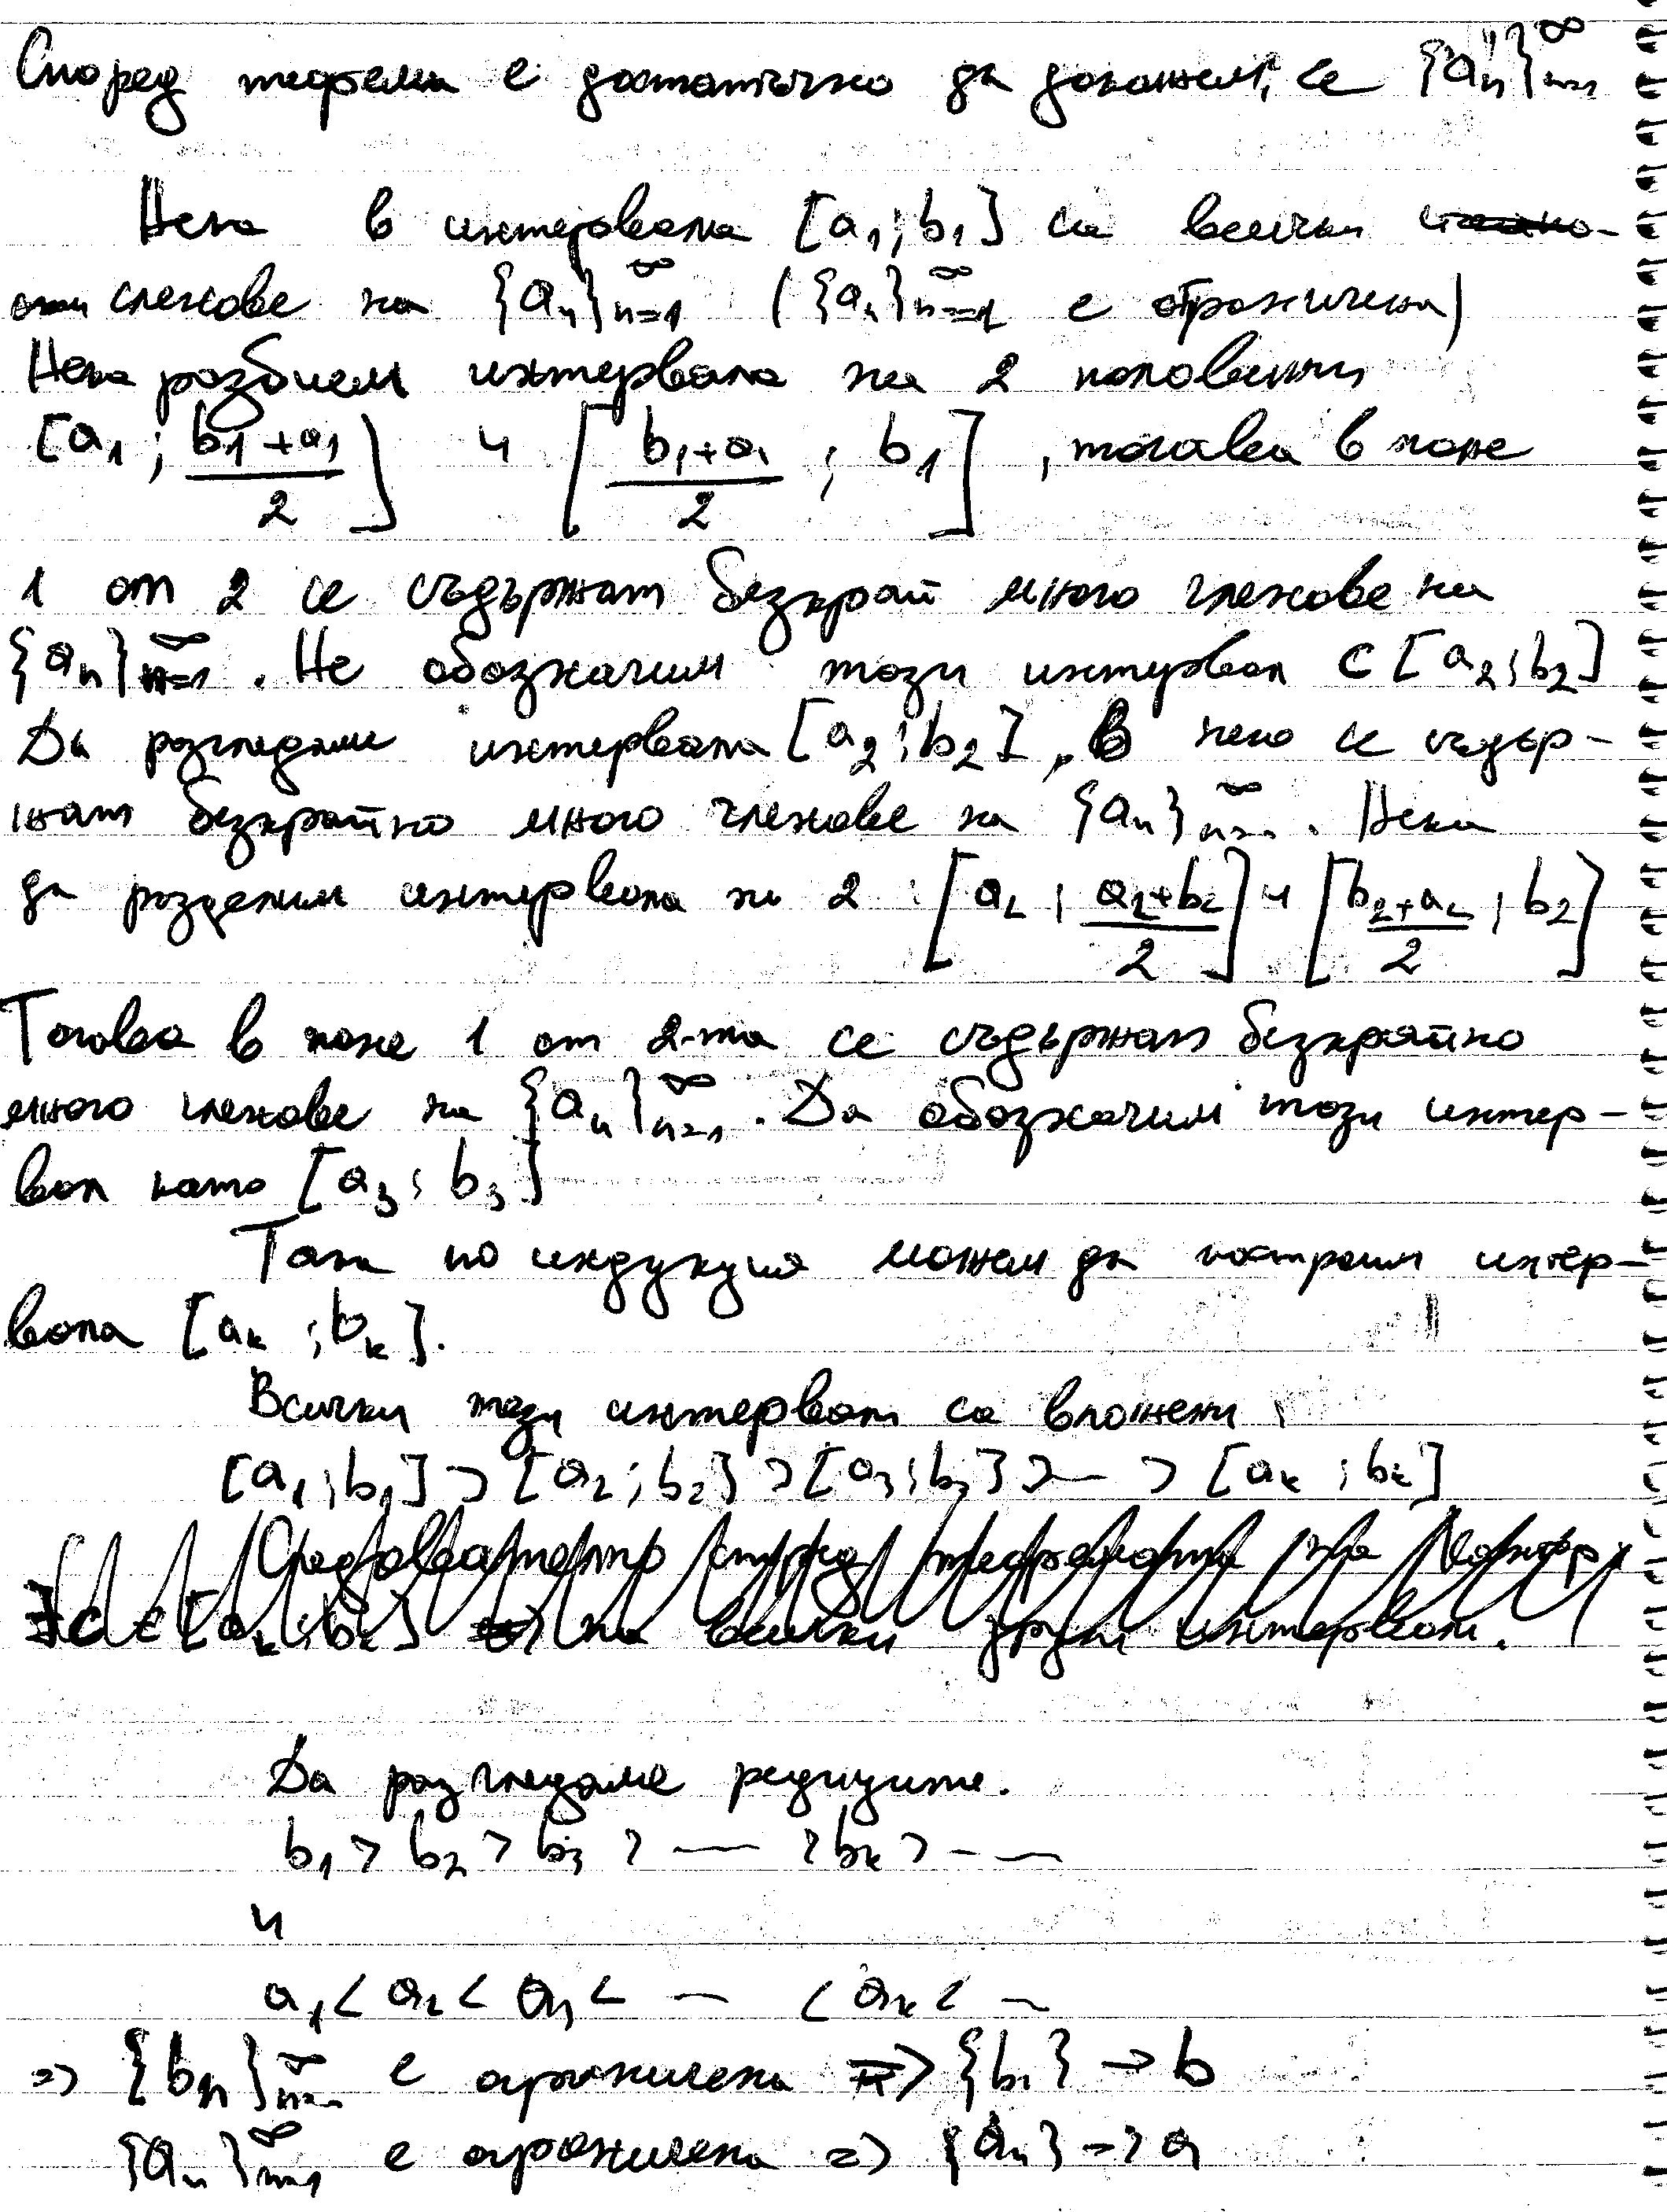 Според теорема е достатъчно да докажем, че {aₙ}ₙ₌₁^∞
Нека в интервала [a₁; b₁] са всички
членове на {aₙ}ₙ₌₁^∞ ({aₙ}ₙ₌₁^∞ е ограничена)
Нека разбием интервала на 2 половини
[a₁; (b₁+a₁)/2] и [(b₁+a₁)/2; b₁], тогава в поне
1 от 2 се съдържат безкрай много членове на
{aₙ}ₙ₌₁^∞. Не обозначим този интервал с [a₂; b₂]
Да разгледаме интервала [a₂; b₂], в него се съдър-
жат безкрайно много членове на {aₙ}ₙ₌₁^∞. Нека
да разделим интервала на 2: [a₂; (a₂+b₂)/2] и [(b₂+a₂)/2; b₂]
Тогава в поне 1 от 2-та се съдържат безкрайно
много членове на {aₙ}ₙ₌₁^∞. Да обозначим този интер-
вал като [a₃; b₃]
Така по индукция можем да построим интер-
вала [aₖ; bₖ].
Всички тези интервали са вложени
[a₁; b₁] ⊃ [a₂; b₂] ⊃ [a₃; b₃] ⊃ — ⊃ [aₖ; bₖ]
Следователно според теоремата на Кантор
∃c ∈ [aₖ; bₖ] на всички други интервали.
Да разгледаме редиците.
b₁ > b₂ > b₃ > — > bₖ > ——
и
a₁ < a₂ < a₃ < — < aₖ < —
=> {bₙ}ₙ₌₁^∞ е ограничена => {bₙ} → b
{aₙ}ₙ₌₁^∞ е ограничена => {aₙ} → a